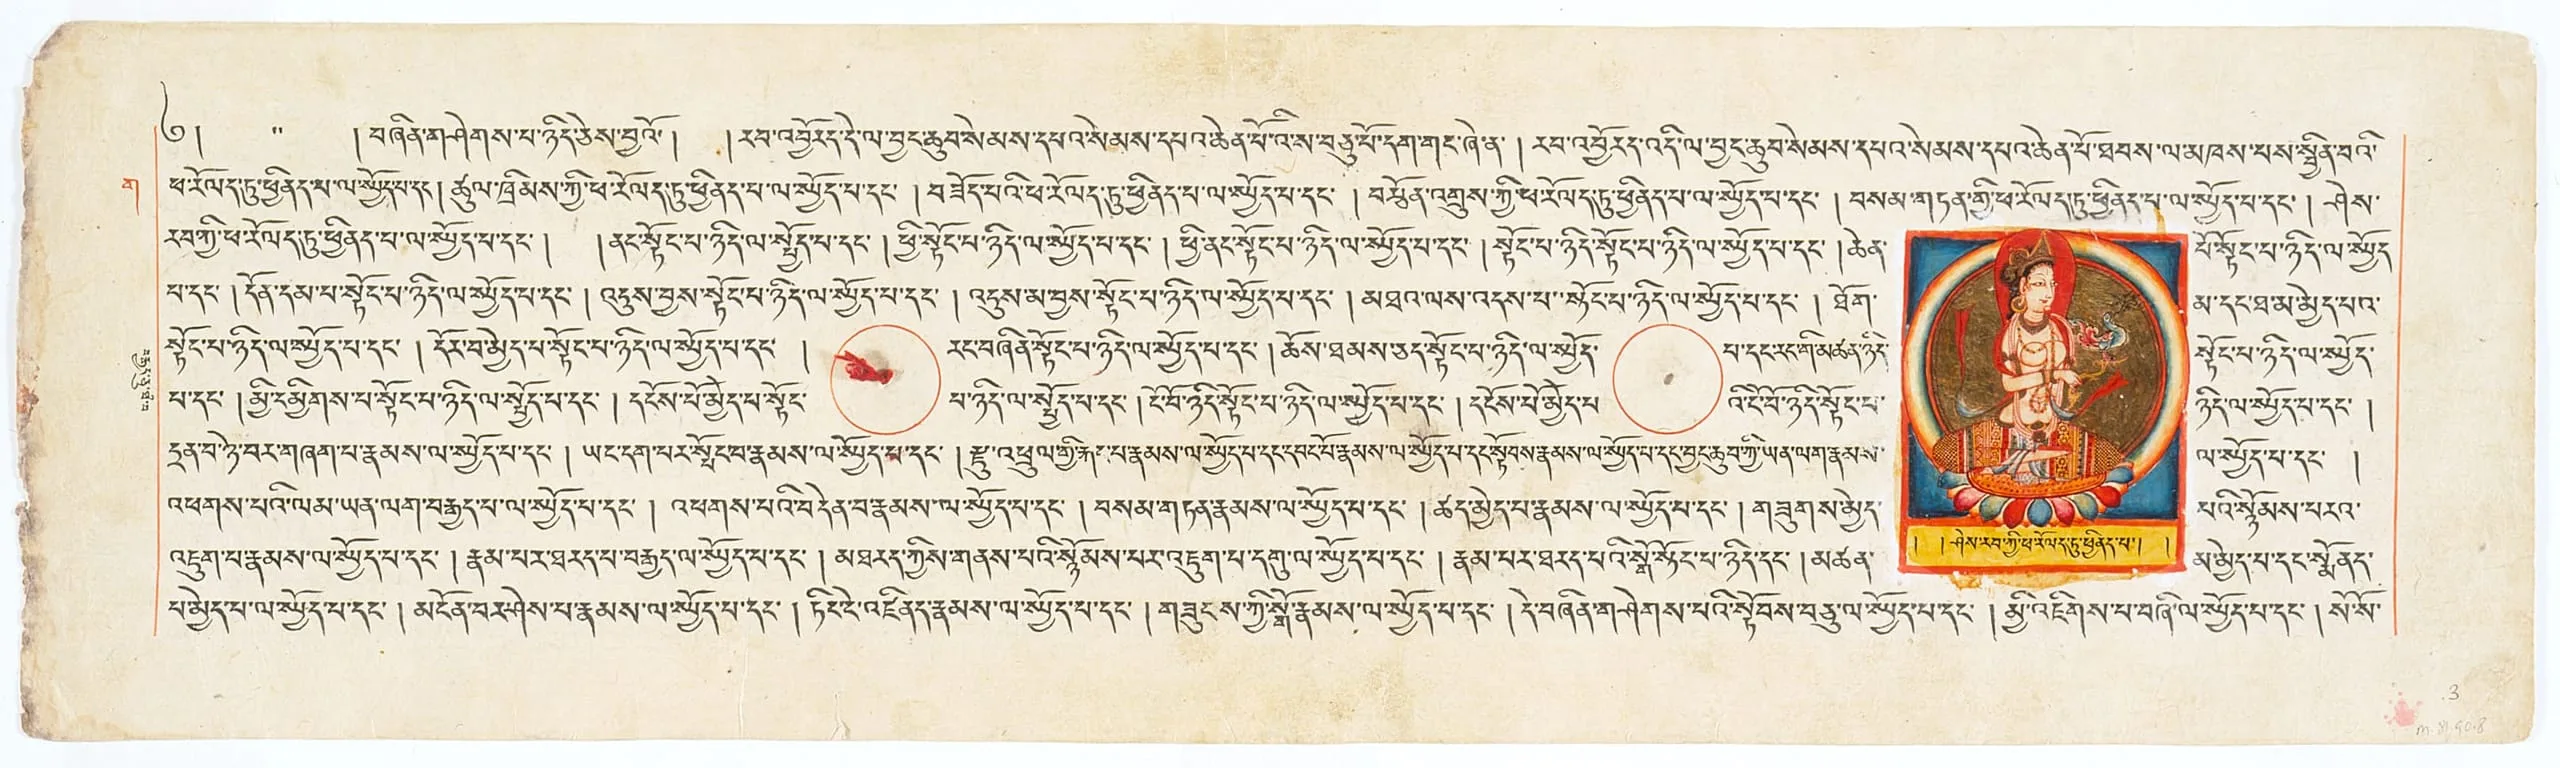 ༄། " །བཞིན་གཤེགས་པ་ཉིད་ཅེས་བྱའོ། །རབ་འབྱོརད་དེ་ལ་བྱང་ཆུབ་སེམས་དཔའ་སེམས་དཔའ་ཆེན་པོ་འི་ས་བཅུ་པོ་དག་གང་ཞེ་ན། རབ་འབྱོརད་འདི་ལ་བྱང་ཆུབ་སེམས་དཔའ་སེམས་དཔའ་ཆེན་པོ་ཐབས་ལ་མཁས་པས་སྦྱིན་བའི་
ག
ཕ་རོལད་ཏུ་ཕྱིནད་པ་ལ་སྤྱོད་པ་དང། ཚུལ་ཁྲིམས་ཀྱི་ཕ་རོལད་ཏུ་ཕྱིནད་པ་ལ་སྤྱོད་པ་དང་། བཟོད་པའི་ཕ་རོལད་ཏུ་ཕྱིནད་པ་ལ་སྤྱོད་པ་དང་། བརྩོན་འགྲུས་ཀྱི་ཕ་རོལད་ཏུ་ཕྱིནད་པ་ལ་སྤྱོད་པ་དང་། བསམ་གཏན་གྱི་ཕ་རོལད་ཏུ་ཕྱིནད་པ་ལ་སྤྱོད་པ་དང་། ཤེས་
རབ་ཀྱི་ཕ་རོལད་ཏུ་ཕྱིནད་པ་ལ་སྤྱོད་པ་དང་། །ནང་སྟོང་པ་ཉིད་ལ་སྤྱོད་པ་དང་། ཕྱི་སྟོང་པ་ཉིད་ལ་སྤྱོད་པ་དང་། ཕྱི་ནང་སྟོང་པ་ཉིད་ལ་སྤྱོད་པ་དང་། སྟོང་པ་ཉིད་སྟོང་པ་ཉིད་ལ་སྤྱོད་པ་དང་། ཆེན་པོ་སྟོང་པ་ཉིད་ལ་སྤྱོད
པ་དང་། དོན་དམ་པ་སྟོང་པ་ཉིད་ལ་སྤྱོད་པ་དང་། འདུས་བྱས་སྟོང་པ་ཉིད་ལ་སྤྱོད་པ་དང་། འདུས་མ་བྱས་སྟོང་པ་ཉིད་ལ་སྤྱོད་པ་དང་། མཐའ་ལས་འདས་པ་སྟོང་པ་ཉིད་ལ་སྤྱོད་པ་དང་། ཐོག་མ་དང་ཐ་མ་མྱེད་པའ་
སྟོང་པ་ཉིད་ལ་སྤྱོད་པ་དང་། དོར་བ་མྱེད་པ་སྟོང་པ་ཉིད་ལ་སྤྱོད་པ་དང་། རང་བཞིན་སྟོང་པ་ཉིད་ལ་སྤྱོད་པ་དང་། ཆོས་ཐམས་ཅད་སྟོང་པ་ཉིད་ལ་སྤྱོད་པ་དང་རང་གི་མཚན་ཉིད་སྟོང་པ་ཉིད་ལ་སྤྱོད་
པ་དང་། མྱི་དམིགས་པ་སྟོང་པ་ཉིད་ལ་སྤྱོད་པ་དང་། དངོས་པོ་མྱེད་པ་སྟོང་པ་ཉིད་ལ་སྤྱོད་པ་དང་། ངོ་བོ་ཉིད་སྟོང་པ་ཉིད་ལ་སྤྱོད་པ་དང་། དངོས་པོ་མྱེད་པའི་ངོ་བོ་ཉིད་སྟོང་པ་ཉིད་ལ་སྤྱོད་པ་དང་།
དྲན་བ་ཉེ་བར་གཞག་པ་རྣམས་ལ་སྤྱོད་པ་དང་། ཡང་དག་པར་སྤོང་བ་རྣམས་ལ་སྤྱོད་པ་དང་། རྫུ་འཕྲུལ་གྱི་རྐང་པ་རྣམས་ལ་སྤྱོད་པ་དང་དབང་པོ་རྣམས་ལ་སྤྱོད་པ་དང་སྟོབས་རྣམས་ལ་སྤྱོད་པ་དང་བྱང་ཆུབ་ཀྱི་ཡན་ལག་རྣམས་ལ་སྤྱོད་པ་དང་།
འཕགས་པའི་ལམ་ཡན་ལག་བརྒྱད་པ་ལ་སྤྱོད་པ་དང་། འཕགས་པའི་བདེན་བ་རྣམས་ལ་སྤྱོད་པ་དང་། བསམ་གཏན་རྣམས་ལ་སྤྱོད་པ་དང་། ཚད་མྱེད་པ་རྣམས་ལ་སྤྱོད་པ་དང་། གཟུགས་མྱེད་པའི་སྙོམས་པརའ་
འཇུག་པ་རྣམས་ལ་སྤྱོད་པ་དང་། རྣམ་པར་ཐརད་པ་བརྒྱད་ལ་སྤྱོད་པ་དང་། མཐརད་ཀྱིས་གནས་པའི་སྙོམས་པར་འཇུག་པ་དགུ་ལ་སྤྱོད་པ་དང་། རྣམ་པར་ཐརད་པའི་སྒོ་སྟོང་པ་ཉིད་དང་། མཚན་མ་མྱེད་པ་དང་སྨོནད་
པ་མྱེད་པ་ལ་སྤྱོད་པ་དང་། མངོན་བར་ཤེས་པ་རྣམས་ལ་སྤྱོད་པ་དང་། ཏིང་ངེ་འཛིནད་རྣམས་ལ་སྤྱོད་པ་དང་། གཟུངས་ཀྱི་སྒོ་རྣམས་ལ་སྤྱོད་པ་དང་། དེ་བཞིན་གཤེགས་པའི་སྟོབས་བཅུ་ལ་སྤྱོད་པ་དང་། མྱི་འཇིགས་པ་བཞི་ལ་སྤྱོད་པ་དང་། སོ་སོ་
། །ཤེས་རབ་ཀྱི་ཕ་རོལད་ཏུ་ཕྱིནད་པ།། །
3
m.81.90.8